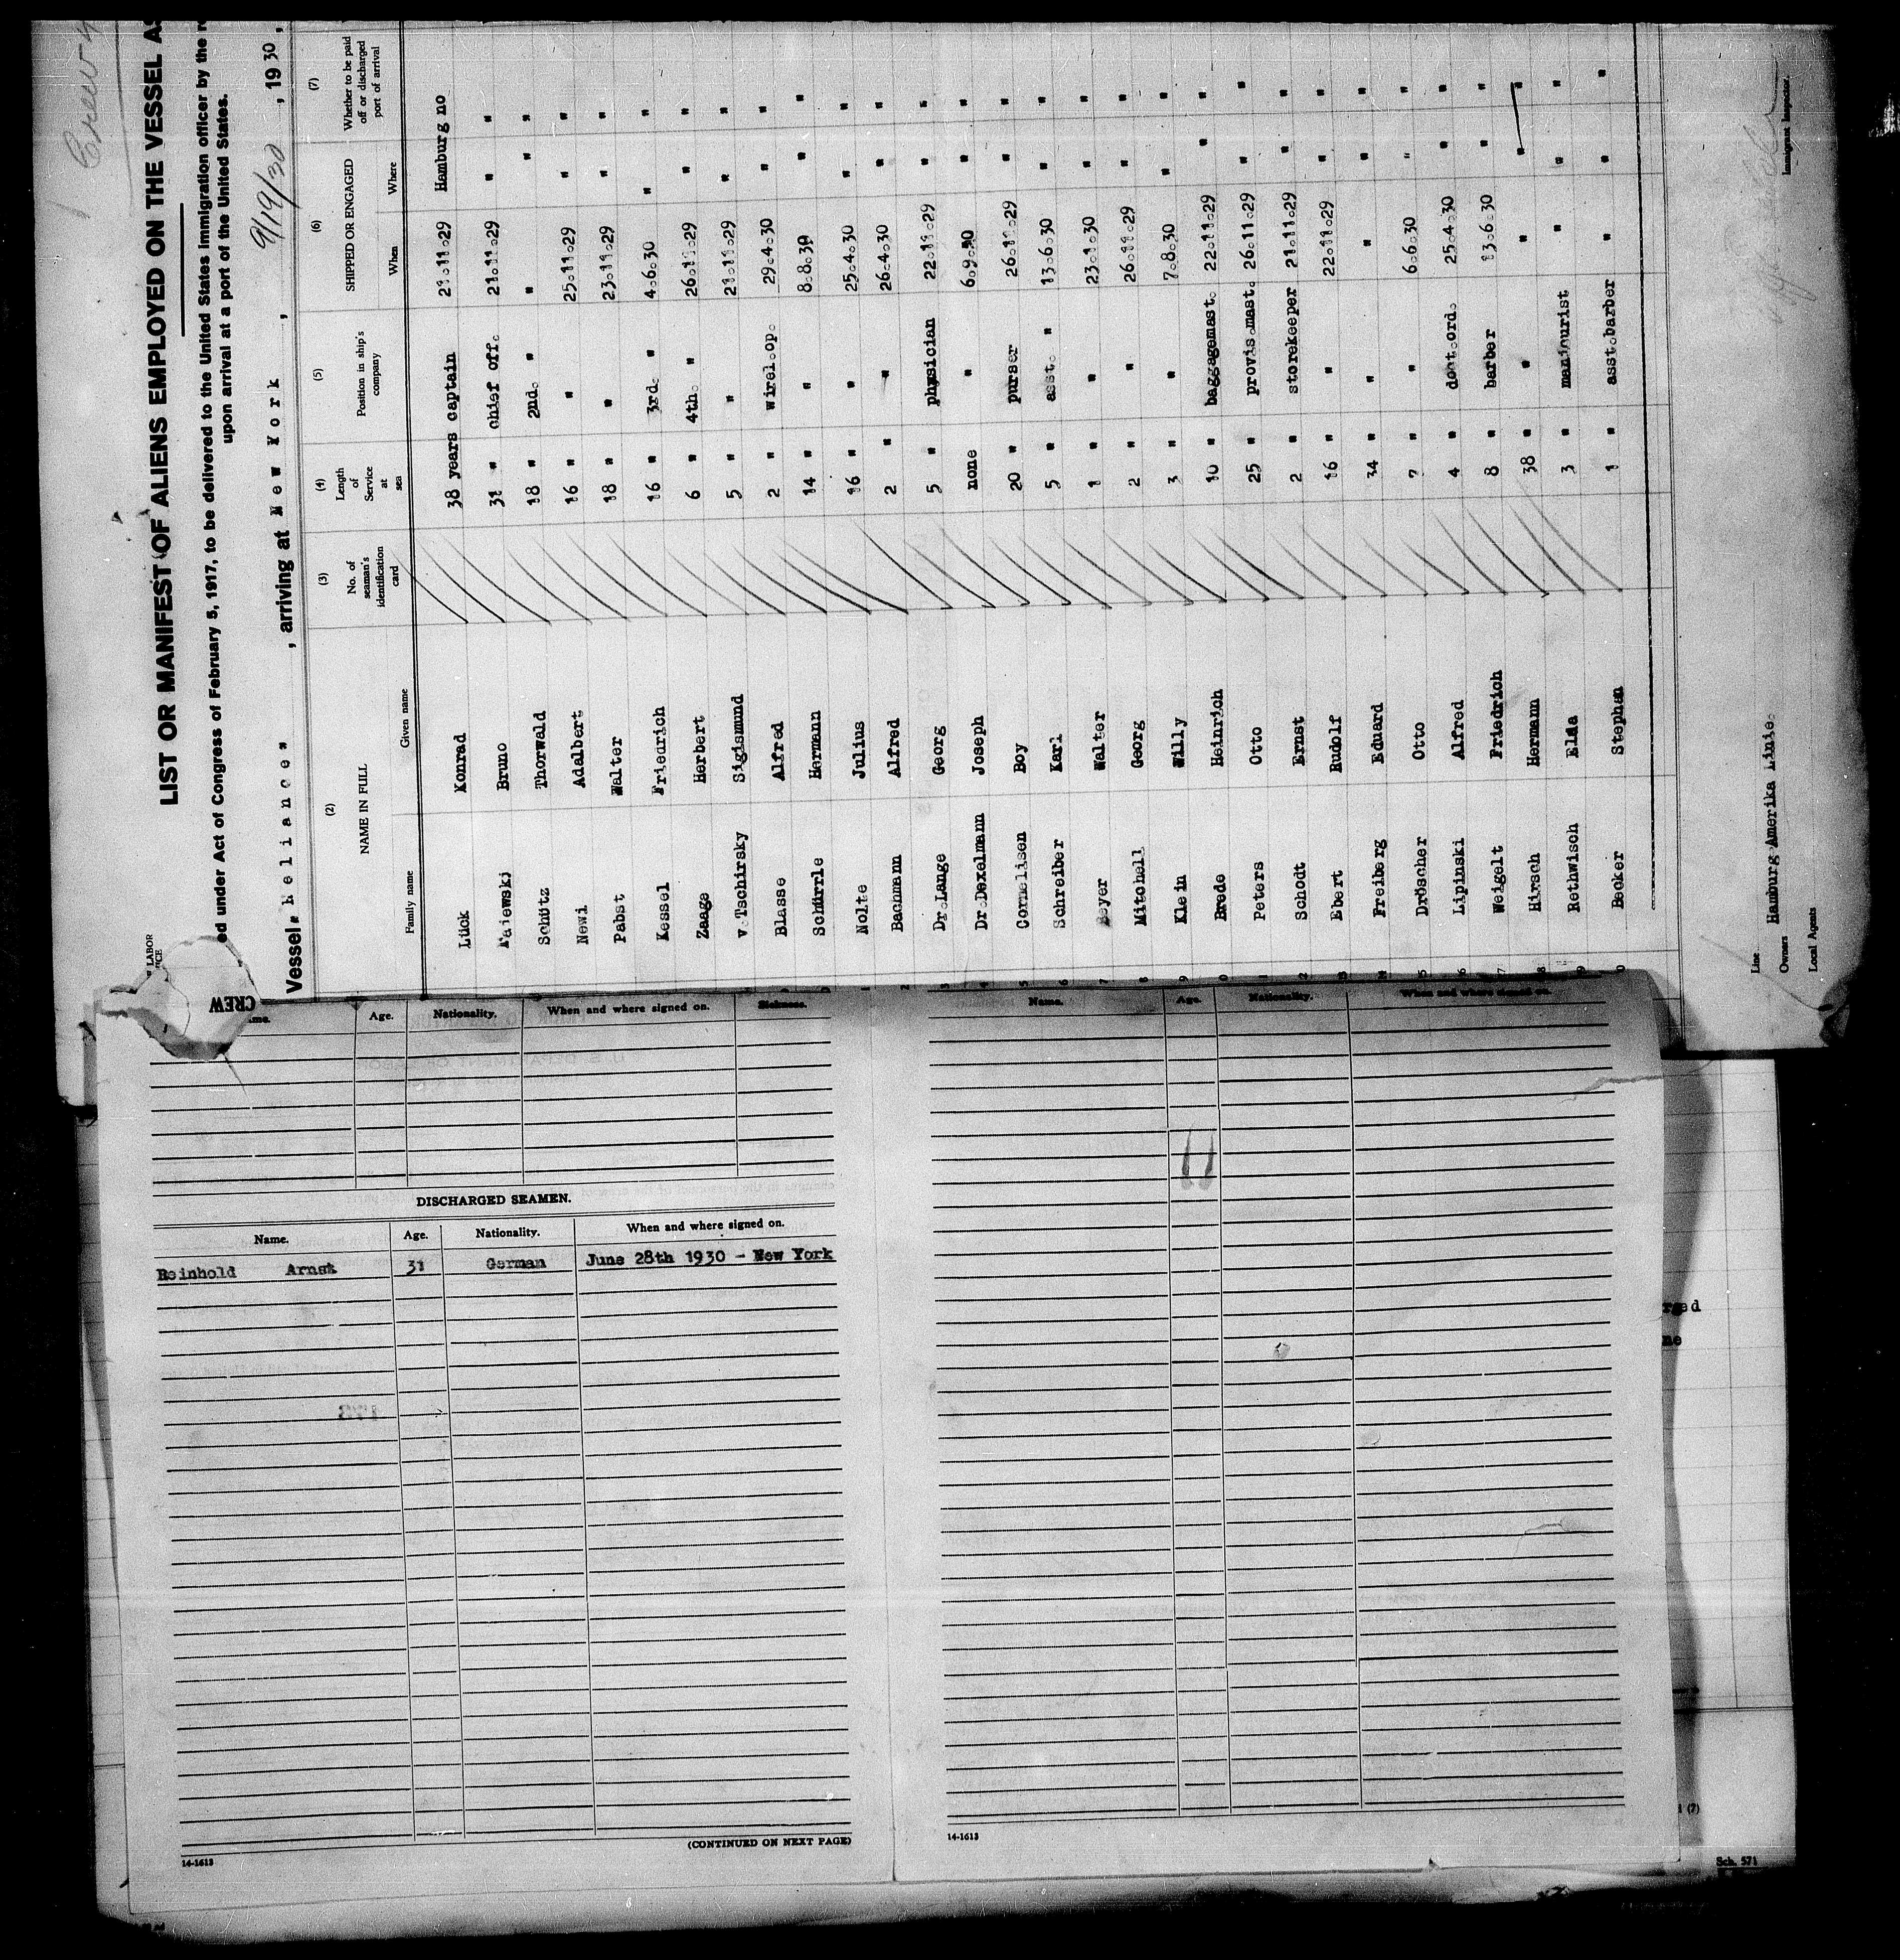 Crew
LIST OR MANIFEST OF ALIENS EMPLOYED ON THE VESSEL AS
ed under Act of Congress of February 5, 1917, to be delivered to the United States immigration officer by the
upon arrival at a port of the United States.
LABOR
Vessel "Reliance" , arriving at New York , 9/19/30 , 1930,
(2) (3) (4) (5) (6) (7)
NAME IN FULL No. of seaman's identification card Length of Service at sea Position in ship's company SHIPPED OR ENGAGED Whether to be paid off or discharged port of arrival
Family name Given name When Where
Lück Konrad 38 years captain 21.11.29 Hamburg no
Bruno 31 " chief off. 21.11.29 " "
Schütz Thorwald 18 " 2nd. " " " "
Newi Adalbert 16 " " 25.11.29 " "
Pabst Walter 18 " " 23.11.29 " "
Kessel Friedrich 16 " 3rd. " 4.6.30 " "
Zaage Herbert 6 " 4th. " 26.11.29 " "
v.Tschirsky Sigismund 5 " " 21.11.29 " "
Blasse Alfred 2 " wirel.op. 29.4.30 " "
Schürrle Hermann 14 " " 8.8.30 " "
Nolte Julius 16 " " 25.4.30 " "
Bachmann Alfred 2 " " 26.4.30 " "
Dr.Lange Georg 5 " physician 22.11.29 " "
Dr.Dexelmann Joseph none " 6.9.30 " "
Cornelisen Boy 20 " purser 26.11.29 " "
Schreiber Karl 5 " asst. " 13.6.30 " "
Beyer Walter 1 " " 23.1.30 " "
Mitchell Georg 2 " " 26.11.29 " "
Klein Willy 3 " " 7.8.30 " "
Brede Heinrich 10 " baggagemast. 22.11.29 " "
Peters Otto 25 " provis.mast. 26.11.29 " "
Schodt Ernst 2 " storekeeper 21.11.29 " "
Ebert Rudolf 16 " " 22.11.29 " "
Freiberg Eduard 34 " " " " "
Dröscher Otto 7 " " 6.6.30 " "
Lipinski Alfred 4 " dont.ord. 25.4.30 " "
Weigelt Friedrich 8 " barber 13.6.30 " "
Hirsch Hermann 38 " " " " "
Rethwisch Ella 3 " manicurist " " "
Becker Stephan 1 " asst.barber " " "
Line
Owners Hamburg Amerika Linie.
Local Agents
Immigrant Inspector.
CREW
Age. Nationality. When and where signed on. Sickness.
DISCHARGED SEAMEN.
Name. Age. Nationality. When and where signed on.
Reinhold Arndt 31 German June 28th 1930 - New York
(CONTINUED ON NEXT PAGE)
14-1613
Name. Age. Nationality. When and where signed on.
11
14-1613
Sch. 571